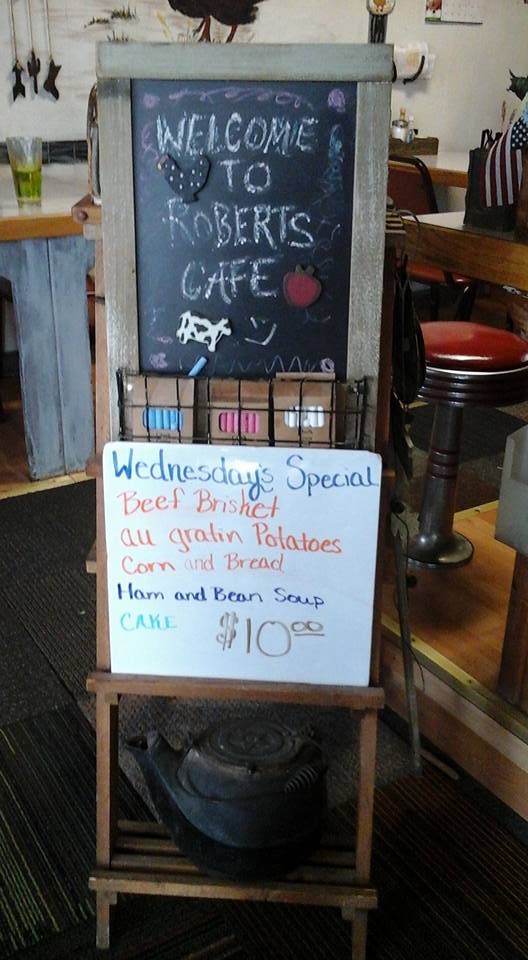 WELCOME
TO
ROBERTS
CAFE
Wednesday's Special
Beef Brisket
au gratin Potatoes
Corn and Bread
Ham and Bean Soup
CAKE $10.00